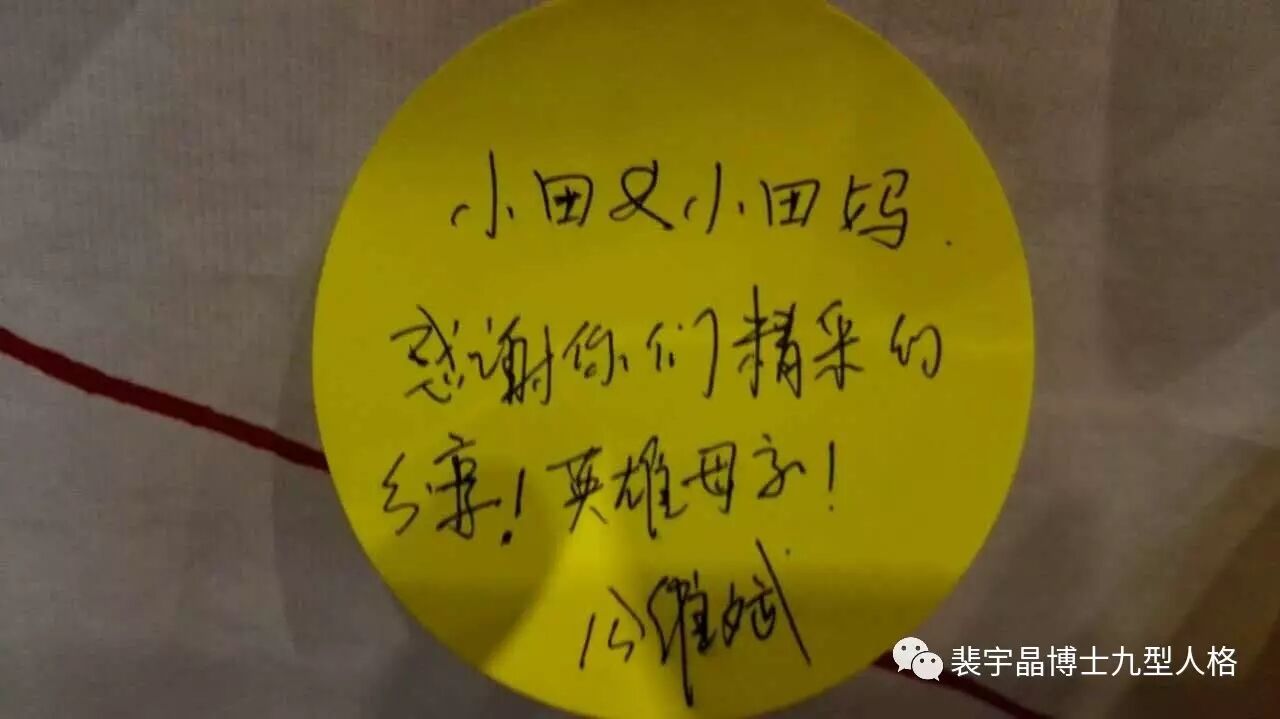 小田及小田妈.
感谢你们精采的
分享!英雄母子!
公维斌
裴宇晶博士九型人格